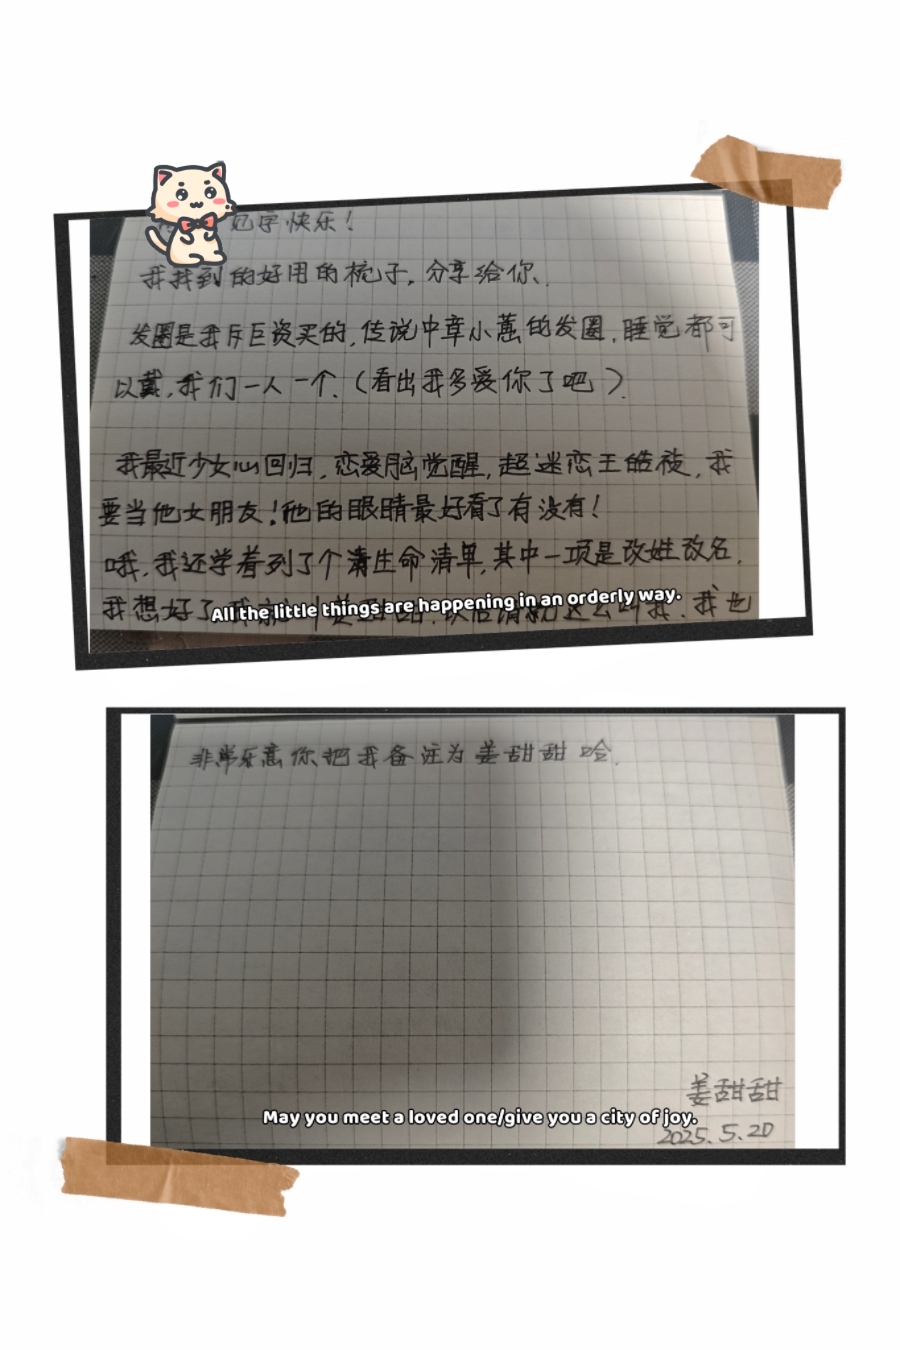 快乐!
我找到的好用的梳子,分享给你、
发圈是我斥巨资买的,传说中章小蕙的发圈,睡觉都可
以戴,我们一人一个.(看出我多爱你了吧)
我最近少女心回归,恋爱脑觉醒,超迷恋王皓,我
要当他女朋友!他的眼睛最好看了有没有!
哦,我还学着列了个清生命清单,其中一项是改姓改名,
我想好了 以后请就这么叫我.我也
All the little things are happening in an orderly way.
非常乐意你把我备注为姜甜甜哈.
姜甜甜
May you meet a loved one/give you a city of joy.
2025.5.20